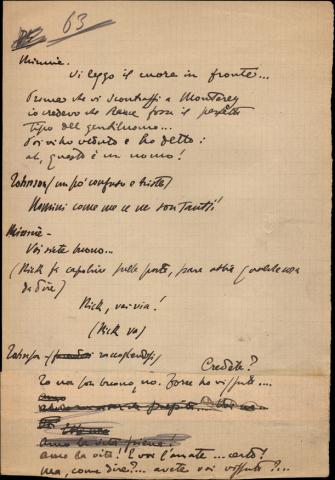 63
Minnie.
Vi leggo il cuore in fronte...
Prima che vi scontrassi a Monterey
io credevo che Rance fosse il perfetto
tipo del gentiluomo...
Poi vi ho veduto e ho detto:
ah, questo è un uomo!
Johnson (un po' confuso e triste)
Uomini come me ce ne son tanti!
Minnie -
Voi siete buono...
(Nick fa capolino sulla porta, pare abbia qualche cosa
da dire)
Nick, vai via!
(Nick va)
Johnson
Credete?
Io non son buono, no. Forse ho vissuto....
amo la vita piena!
amo la vita! E voi l'amate ... certo?
ma, come dire?... avete voi vissuto?...